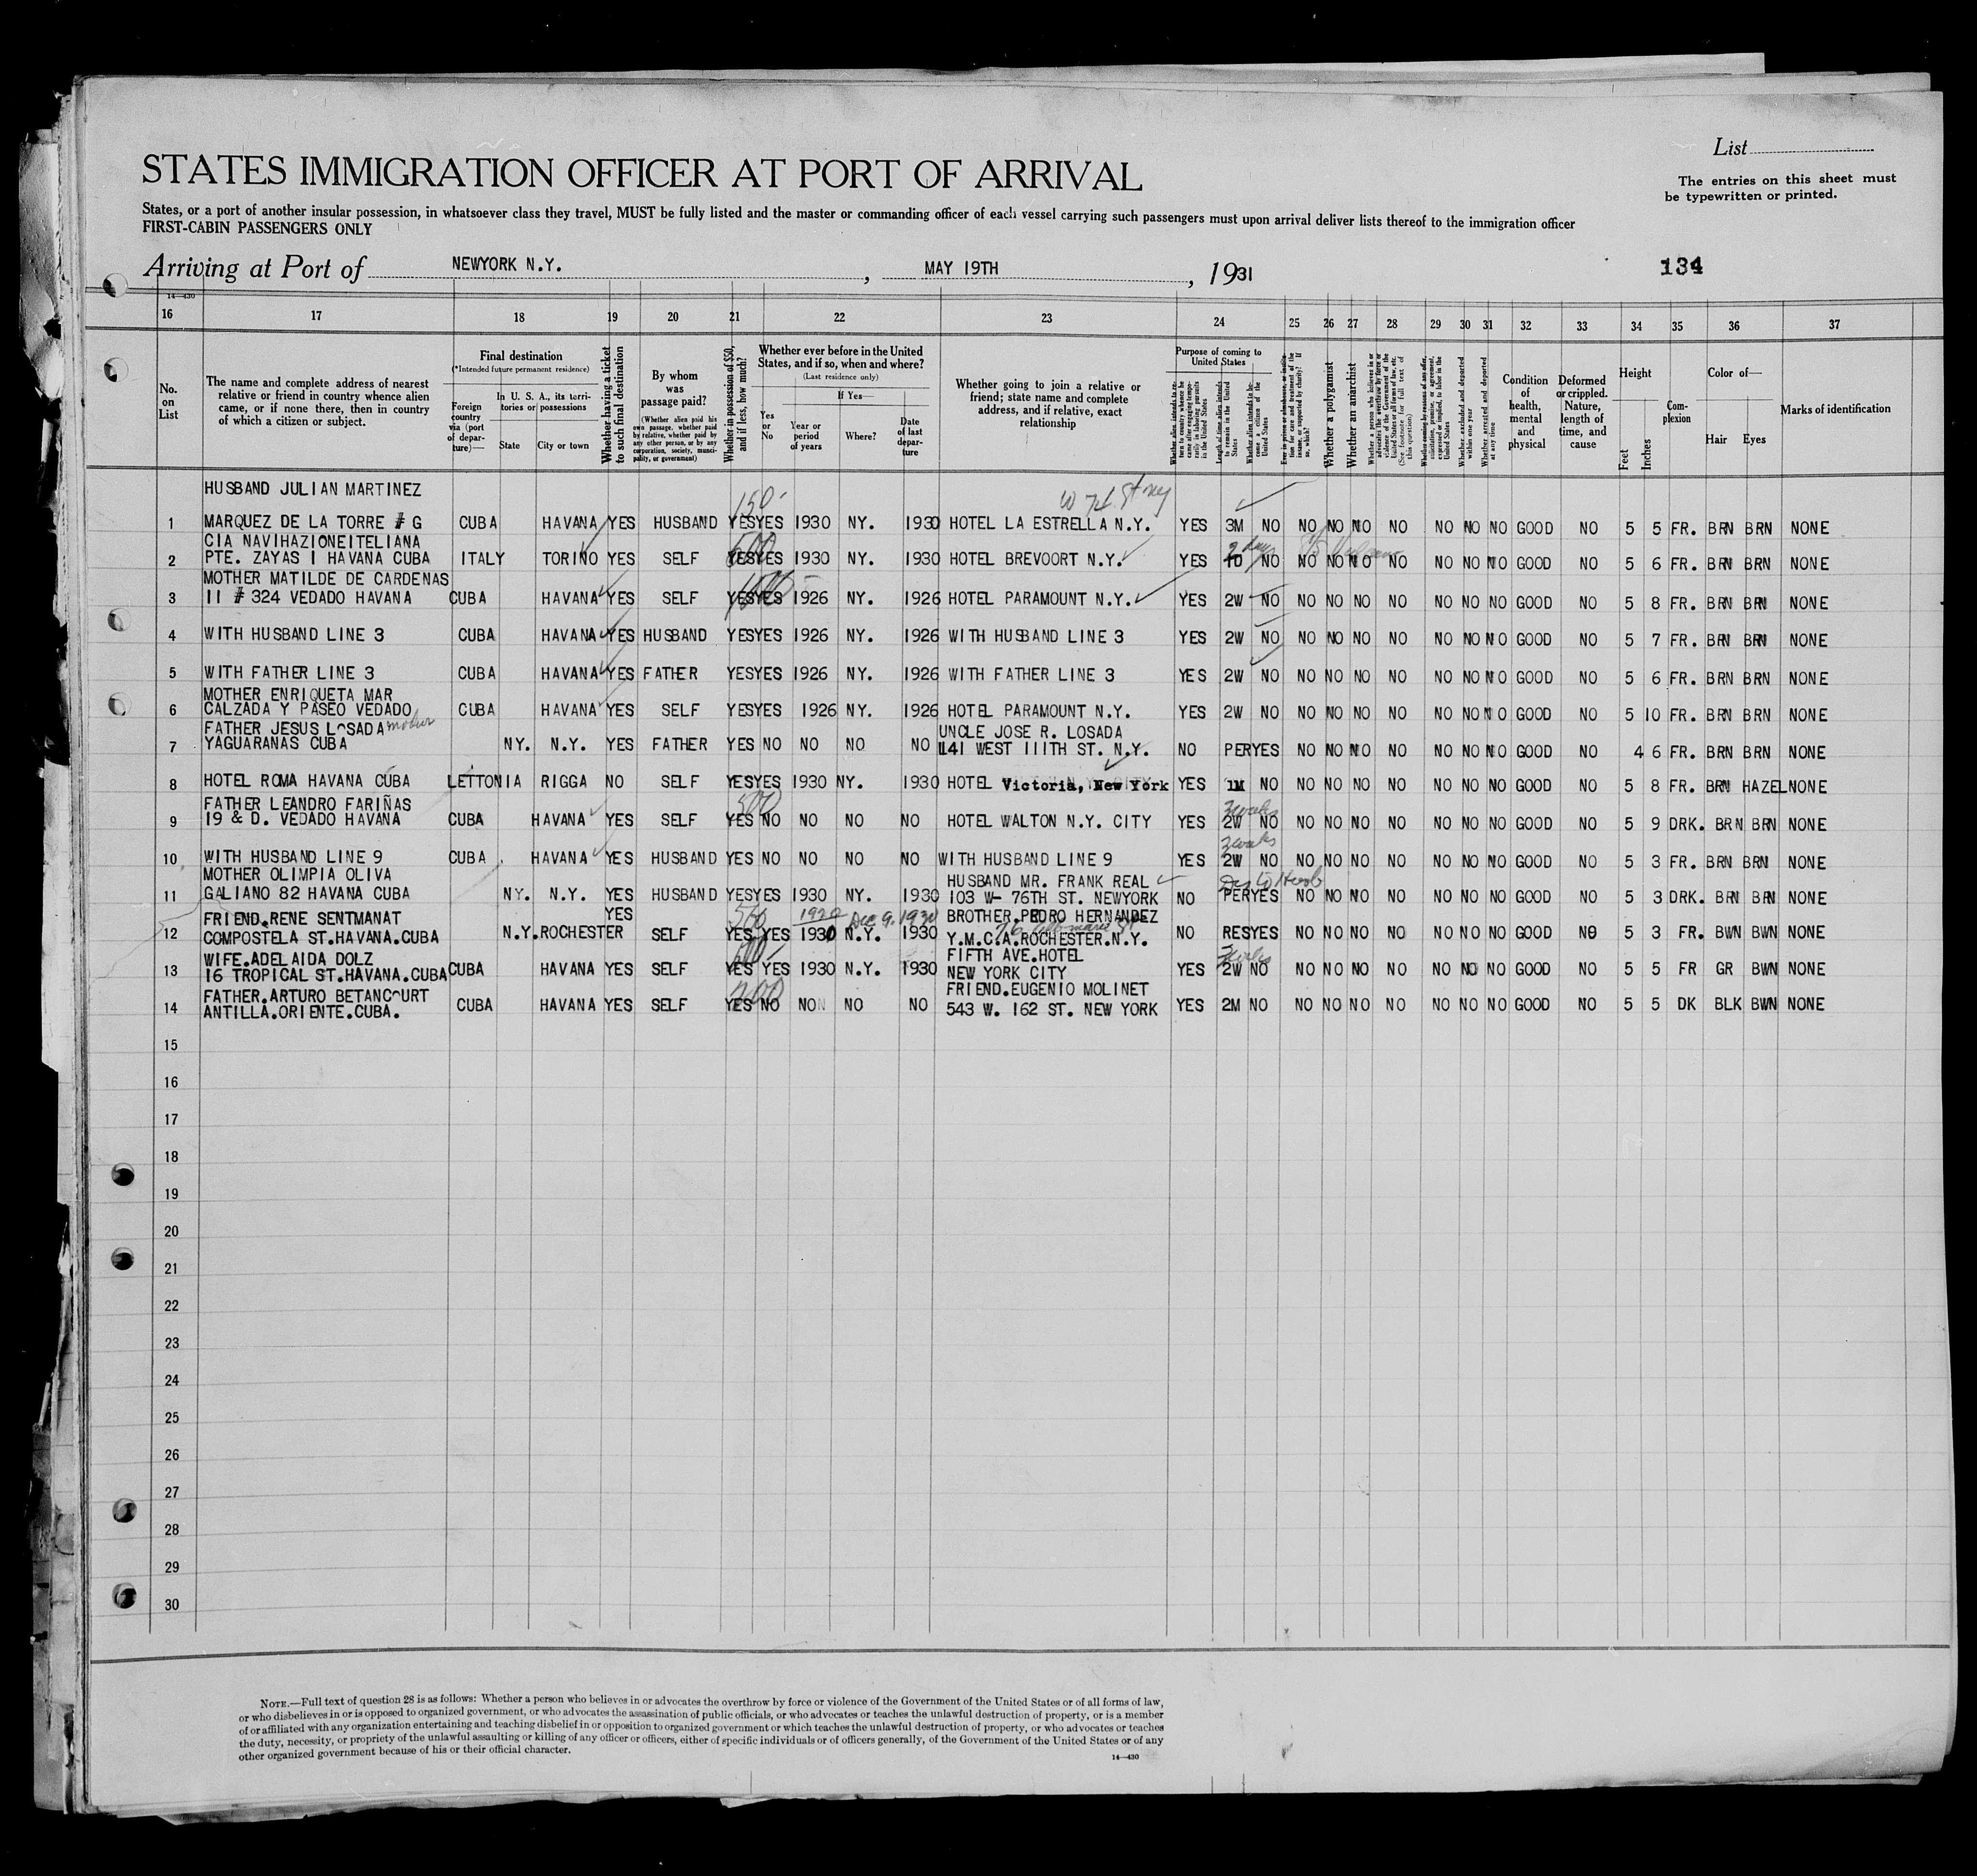 List
STATES IMMIGRATION OFFICER AT PORT OF ARRIVAL
The entries on this sheet must
be typewritten or printed.
States, or a port of another insular possession, in whatsoever class they travel, MUST be fully listed and the master or commanding officer of each vessel carrying such passengers must upon arrival deliver lists thereof to the immigration officer
FIRST-CABIN PASSENGERS ONLY
Arriving at Port of NEWYORK N.Y. , MAY 19TH , 1931
134
14—430
16 17 18 19 20 21 22 23 24 25 26 27 28 29 30 31 32 33 34 35 36 37
No. on List
The name and complete address of nearest relative or friend in country whence alien came, or if none there, then in country of which a citizen or subject.
Final destination
(*Intended future permanent residence)
Foreign country via (port of departure)—
In U. S. A., its territories or possessions
State
City or town
Whether having a ticket to such final destination
By whom was passage paid?
(Whether alien paid his own passage, whether paid by relative, whether paid by any other person, or by any corporation, society, municipality, or government)
Whether in possession of $50, and if less, how much?
Whether ever before in the United States, and if so, when and where?
(Last residence only)
Yes or No
If Yes—
Year or period of years
Where?
Date of last departure
Whether going to join a relative or friend; state name and complete address, and if relative, exact relationship
Purpose of coming to United States
Whether alien intends to return to country whence he came after engaging temporarily in laboring pursuits in the United States
Length of time alien intends to remain in the United States
Whether alien intends to become a citizen of the United States
Ever in prison or almshouse, or institution for care and treatment of the insane, or supported by charity? If so, which?
Whether a polygamist
Whether an anarchist
Whether a person who believes in or advocates the overthrow by force or violence of the Government of the United States or all forms of law, etc. (See footnote for full text of this question)
Whether coming by reasons of any offer, solicitation, promise, or agreement, expressed or implied, to labor in the United States
Whether excluded and deported within one year
Whether arrested and deported at any time
Condition of health, mental and physical
Deformed or crippled. Nature, length of time, and cause
Height
Feet
Inches
Complexion
Color of—
Hair
Eyes
Marks of identification
HUSBAND JULIAN MARTINEZ 150 W 74 St ny
1 MARQUEZ DE LA TORRE # G CUBA HAVANA YES HUSBAND YES YES 1930 NY. 1930 HOTEL LA ESTRELLA N.Y. YES 3M NO NO NO NO NO NO NO NO GOOD NO 5 5 FR. BRN BRN NONE
CIA NAVIHAZIONEITELIANA 500
2 PTE. ZAYAS 1 HAVANA CUBA ITALY TORINO YES SELF YES YES 1930 NY. 1930 HOTEL BREVOORT N.Y. YES 1D 2 days NO NO NO NO NO NO NO NO GOOD NO 5 6 FR. BRN BRN NONE
MOTHER MATILDE DE CARDENAS
3 11 # 324 VEDADO HAVANA CUBA HAVANA YES SELF YES YES 1926 NY. 1926 HOTEL PARAMOUNT N.Y. YES 2W NO NO NO NO NO NO NO NO GOOD NO 5 8 FR. BRN BRN NONE
4 WITH HUSBAND LINE 3 CUBA HAVANA YES HUSBAND YES YES 1926 NY. 1926 WITH HUSBAND LINE 3 YES 2W NO NO NO NO NO NO NO NO GOOD NO 5 7 FR. BRN BRN NONE
5 WITH FATHER LINE 3 CUBA HAVANA YES FATHER YES YES 1926 NY. 1926 WITH FATHER LINE 3 YES 2W NO NO NO NO NO NO NO NO GOOD NO 5 6 FR. BRN BRN NONE
MOTHER ENRIQUETA MAR
6 CALZADA Y PASEO VEDADO CUBA HAVANA YES SELF YES YES 1926 NY. 1926 HOTEL PARAMOUNT N.Y. YES 2W NO NO NO NO NO NO NO NO GOOD NO 5 10 FR. BRN BRN NONE
FATHER JESUS LOSADA mother UNCLE JOSE R. LOSADA
7 YAGUARANAS CUBA NY. N.Y. YES FATHER YES NO NO NO NO 141 WEST 111TH ST. N.Y. NO PER YES NO NO NO NO NO NO NO GOOD NO 4 6 FR. BRN BRN NONE
8 HOTEL ROMA HAVANA CUBA LETTONIA RIGGA NO SELF YES YES 1930 NY. 1930 HOTEL Victoria, New York YES 1M NO NO NO NO NO NO NO NO GOOD NO 5 8 FR. BRN HAZEL NONE
FATHER LEANDRO FARIÑAS 500 3 weeks
9 19 & D. VEDADO HAVANA CUBA HAVANA YES SELF YES NO NO NO NO HOTEL WALTON N.Y. CITY YES 2W NO NO NO NO NO NO NO NO GOOD NO 5 9 DRK. BRN BRN NONE
3 weeks
10 WITH HUSBAND LINE 9 CUBA HAVANA YES HUSBAND YES NO NO NO NO WITH HUSBAND LINE 9 YES 2W NO NO NO NO NO NO NO NO GOOD NO 5 3 FR. BRN BRN NONE
MOTHER OLIMPIA OLIVA HUSBAND MR. FRANK REAL
11 GALIANO 82 HAVANA CUBA NY. N.Y. YES HUSBAND YES YES 1930 NY. 1930 103 W- 76TH ST. NEWYORK NO PER YES NO NO NO NO NO NO NO GOOD NO 5 3 DRK. BRN BRN NONE
FRIEND.RENE SENTMANAT YES 500 1920 Dec 9. 1930 BROTHER.PEDRO HERNANDEZ
12 COMPOSTELA ST.HAVANA.CUBA N.Y. ROCHESTER SELF YES YES 1930 N.Y. 1930 Y.M.C.A.ROCHESTER.N.Y. NO RES YES NO NO NO NO NO NO NO GOOD NO 5 3 FR. BWN BWN NONE
WIFE.ADELAIDA DOLZ FIFTH AVE.HOTEL
13 16 TROPICAL ST.HAVANA.CUBA CUBA HAVANA YES SELF YES YES 1930 N.Y. 1930 NEW YORK CITY YES 2W NO NO NO NO NO NO NO NO GOOD NO 5 5 FR GR BWN NONE
FATHER.ARTURO BETANCOURT 200 FRIEND.EUGENIO MOLINET
14 ANTILLA.ORIENTE.CUBA. CUBA HAVANA YES SELF YES NO NO NO NO 543 W. 162 ST. NEW YORK YES 2M NO NO NO NO NO NO NO NO GOOD NO 5 5 DK BLK BWN NONE
15
16
17
18
19
20
21
22
23
24
25
26
27
28
29
30
NOTE.—Full text of question 28 is as follows: Whether a person who believes in or advocates the overthrow by force or violence of the Government of the United States or of all forms of law,
or who disbelieves in or is opposed to organized government, or who advocates the assassination of public officials, or who advocates or teaches the unlawful destruction of property, or is a member
of or affiliated with any organization entertaining and teaching disbelief in or opposition to organized government or which teaches the unlawful destruction of property, or who advocates or teaches
the duty, necessity, or propriety of the unlawful assaulting or killing of any officer or officers, either of specific individuals or of officers generally, of the Government of the United States or of any
other organized government because of his or their official character.
14—430